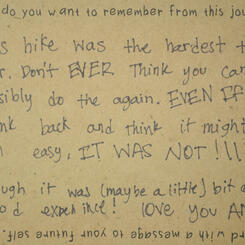 do you want to remember from this jou
s hike was the hardest t
r. Don't EVER Think you can
sibly do the again. EVEN If
nk back and think it might
easy, IT WAS NOT!!!
ugh it was (maybe a little) bit a
od experince! love you AN
rd with a message to your future self.